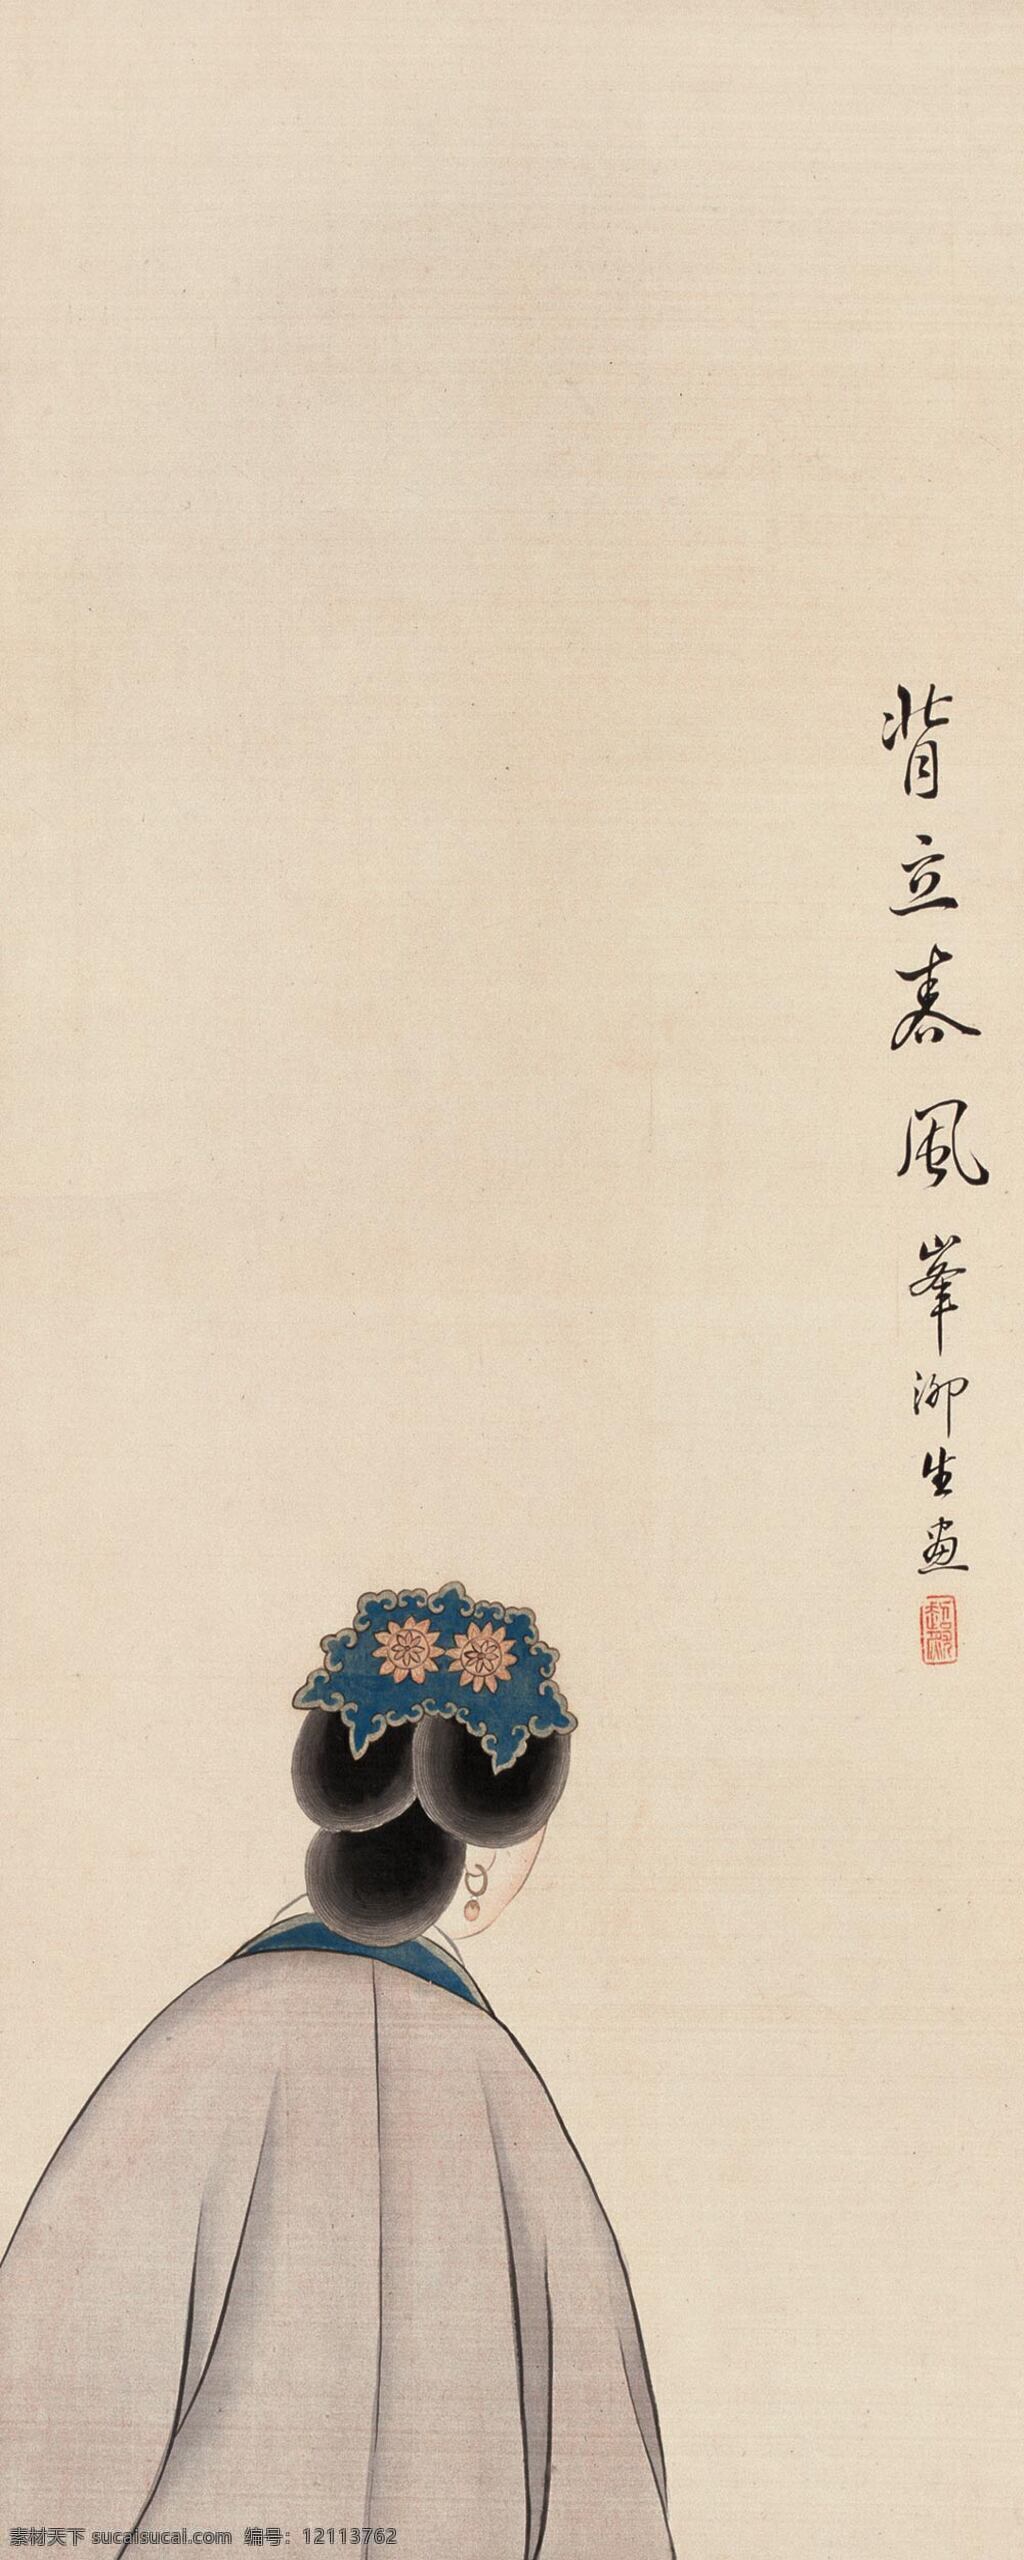 背立春風 峯泖生画
素材天下 sucaisucai.com 编号：12113762